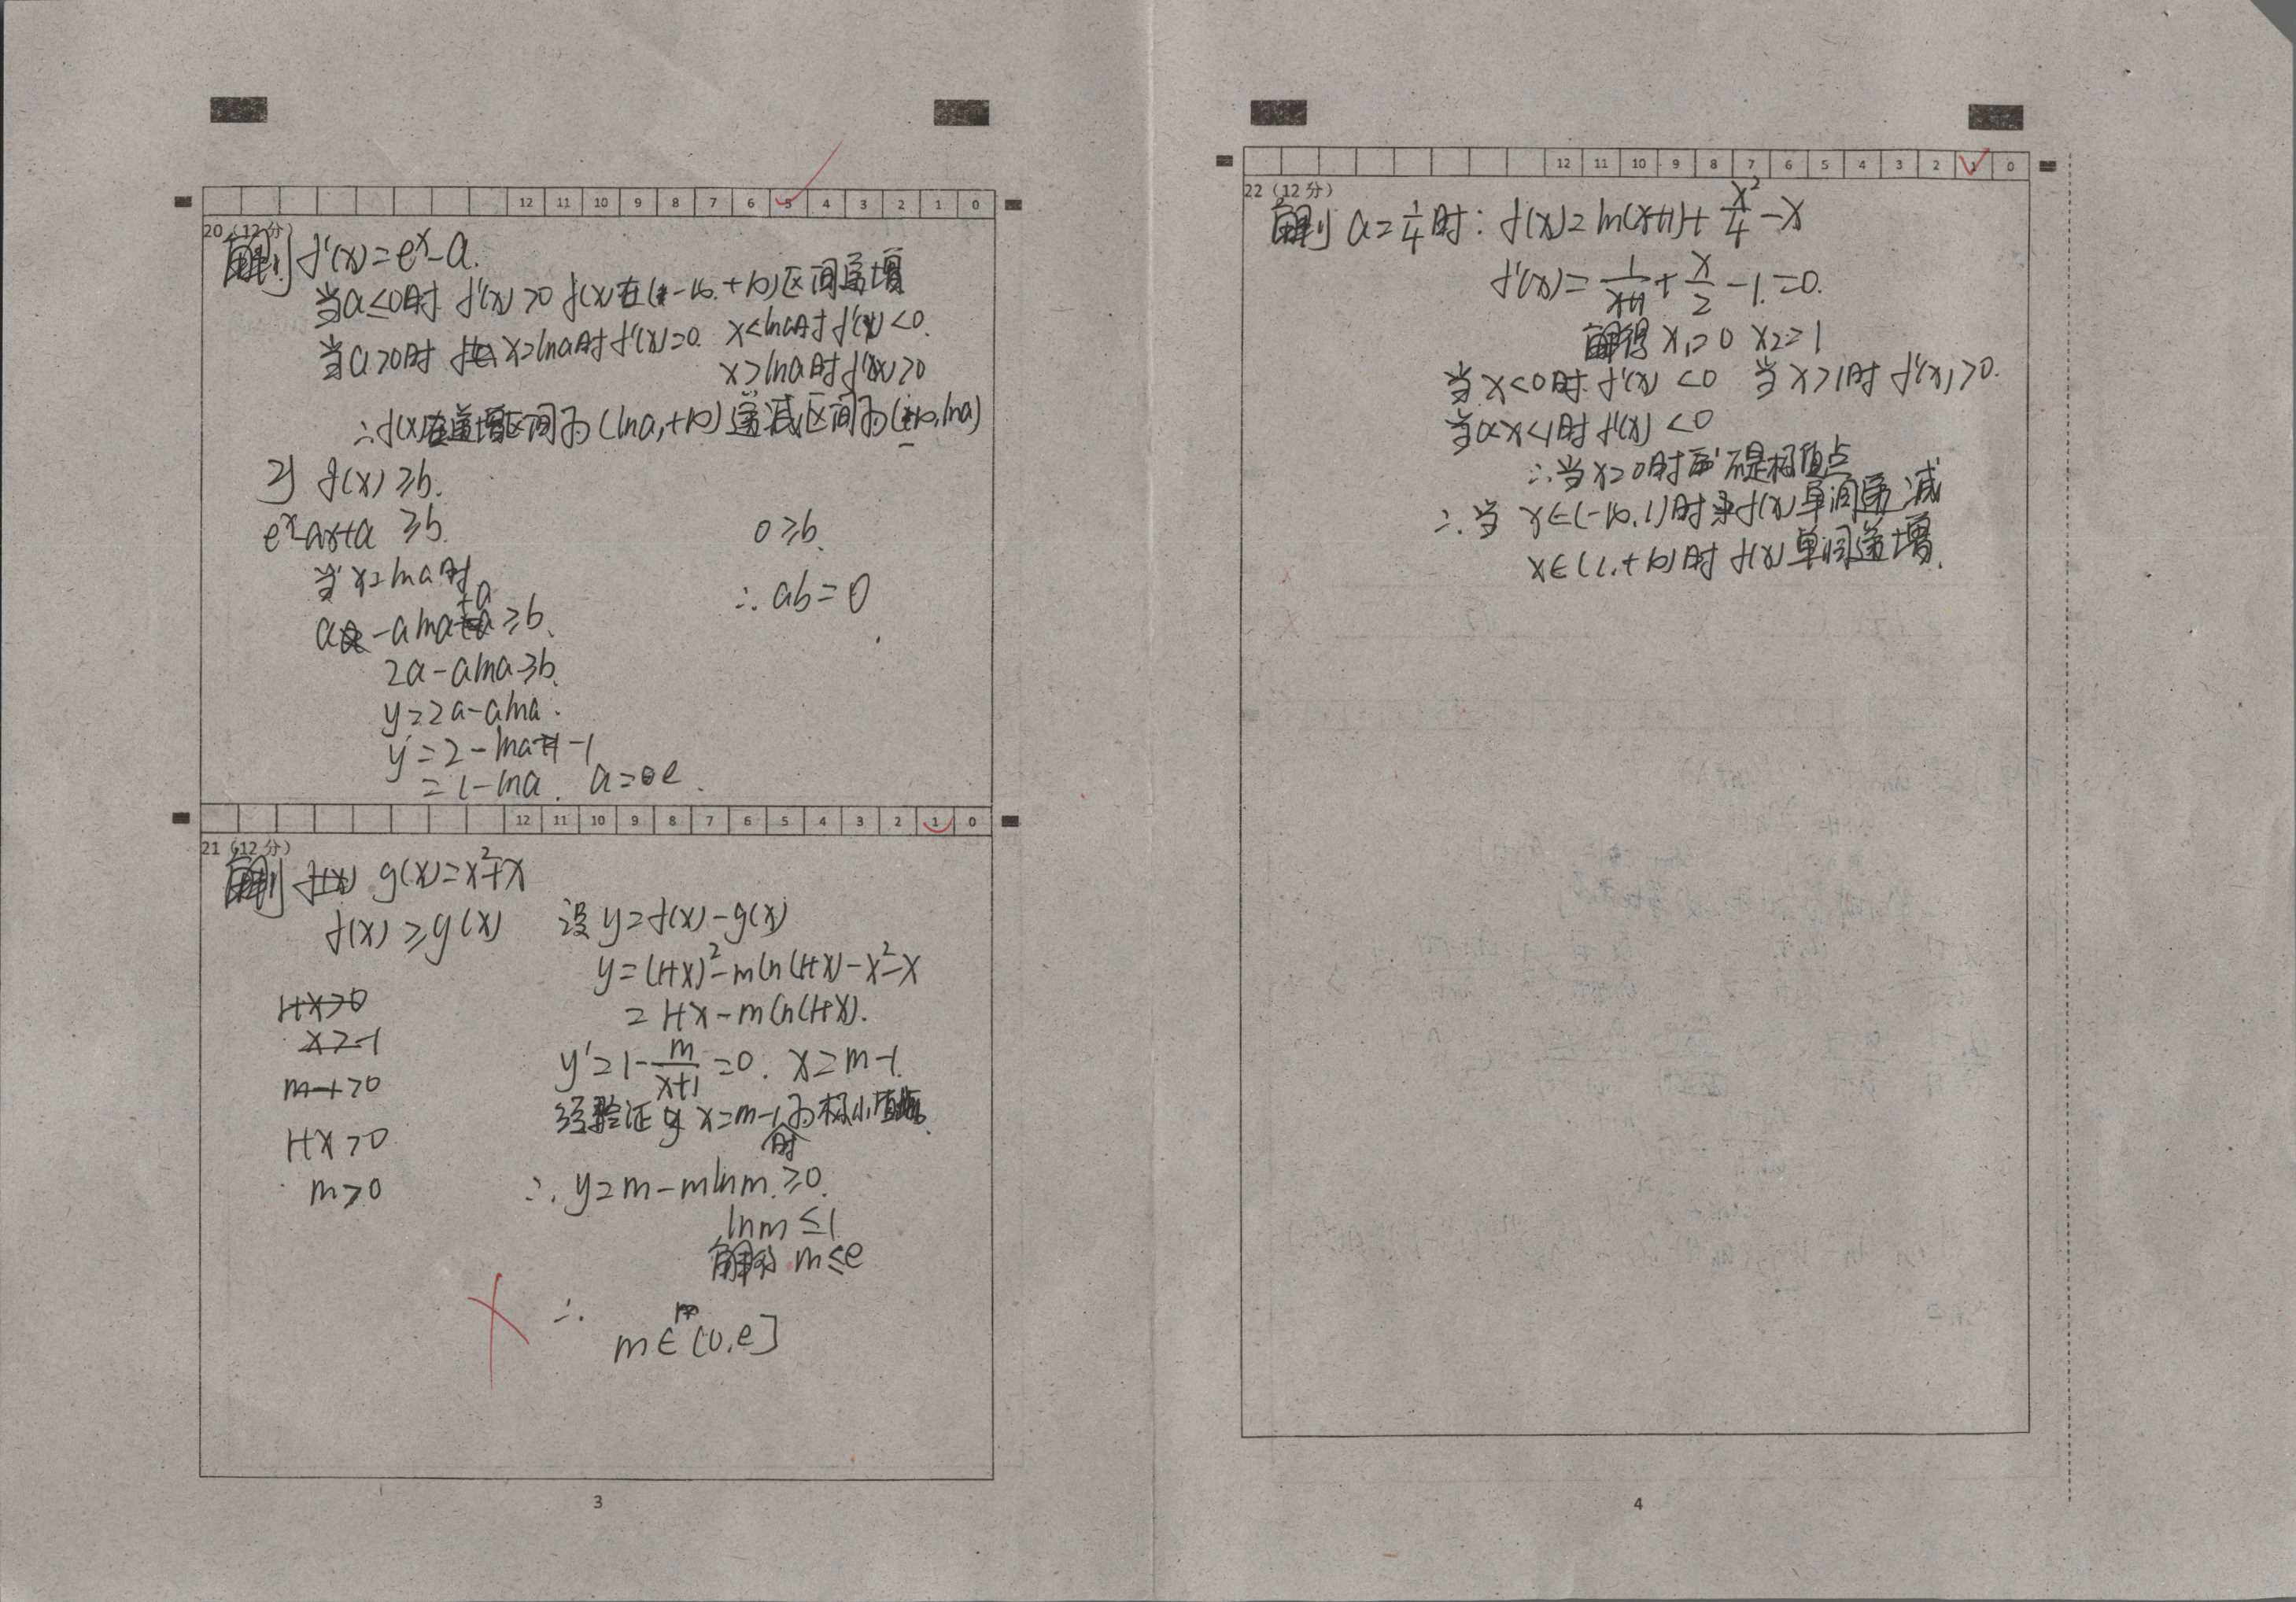 12 11 10 9 8 7 6 5 4 3 2 1 0
20（12 分）
解1) f'(x)=eˣ-a.
当a≤0时 f'(x)>0 f(x)在(-∞,+∞)区间递增
当a>0时 x=lna时f'(x)=0. x<lna时f'(x)<0.
x>lna时f'(x)>0
∴f(x)递增区间为(lna,+∞) 递减区间为(-∞,lna)
2) f(x)≥b.
eˣ-ax+a ≥b.
当x=lna时
a-alna+a≥b.
2a-alna≥b.
y=2a-alna.
y'=2-lna-1
=1-lna. a=e.
0≥b.
∴ab=0
12 11 10 9 8 7 6 5 4 3 2 1 0
21（12 分）
解1) g(x)=x²+x
f(x)≥g(x) 设y=f(x)-g(x)
y=(1+x)²-mln(1+x)-x²-x
=1+x-mln(1+x).
y'=1-m/(x+1)=0. x=m-1.
经验证 x=m-1时为极小值
∴y=m-mlnm≥0.
lnm≤1
解得 m≤e
∴
m∈(0,e]
1+x>0
x>-1
m-1>0
1+x>0
m>0
3
12 11 10 9 8 7 6 5 4 3 2 1 0
22（12 分）
解1) a=1/4时: f(x)=ln(x+1)+x²/4-x
f'(x)=1/(x+1)+x/2-1=0.
解得 x₁=0 x₂=1
当x<0时 f'(x)<0 当x>1时 f'(x)>0.
当0<x<1时f'(x)<0
∴当x=0时不是极值点
∴当 x∈(-∞,1)时f(x)单调递减
x∈(1,+∞)时 f(x)单调递增.
4